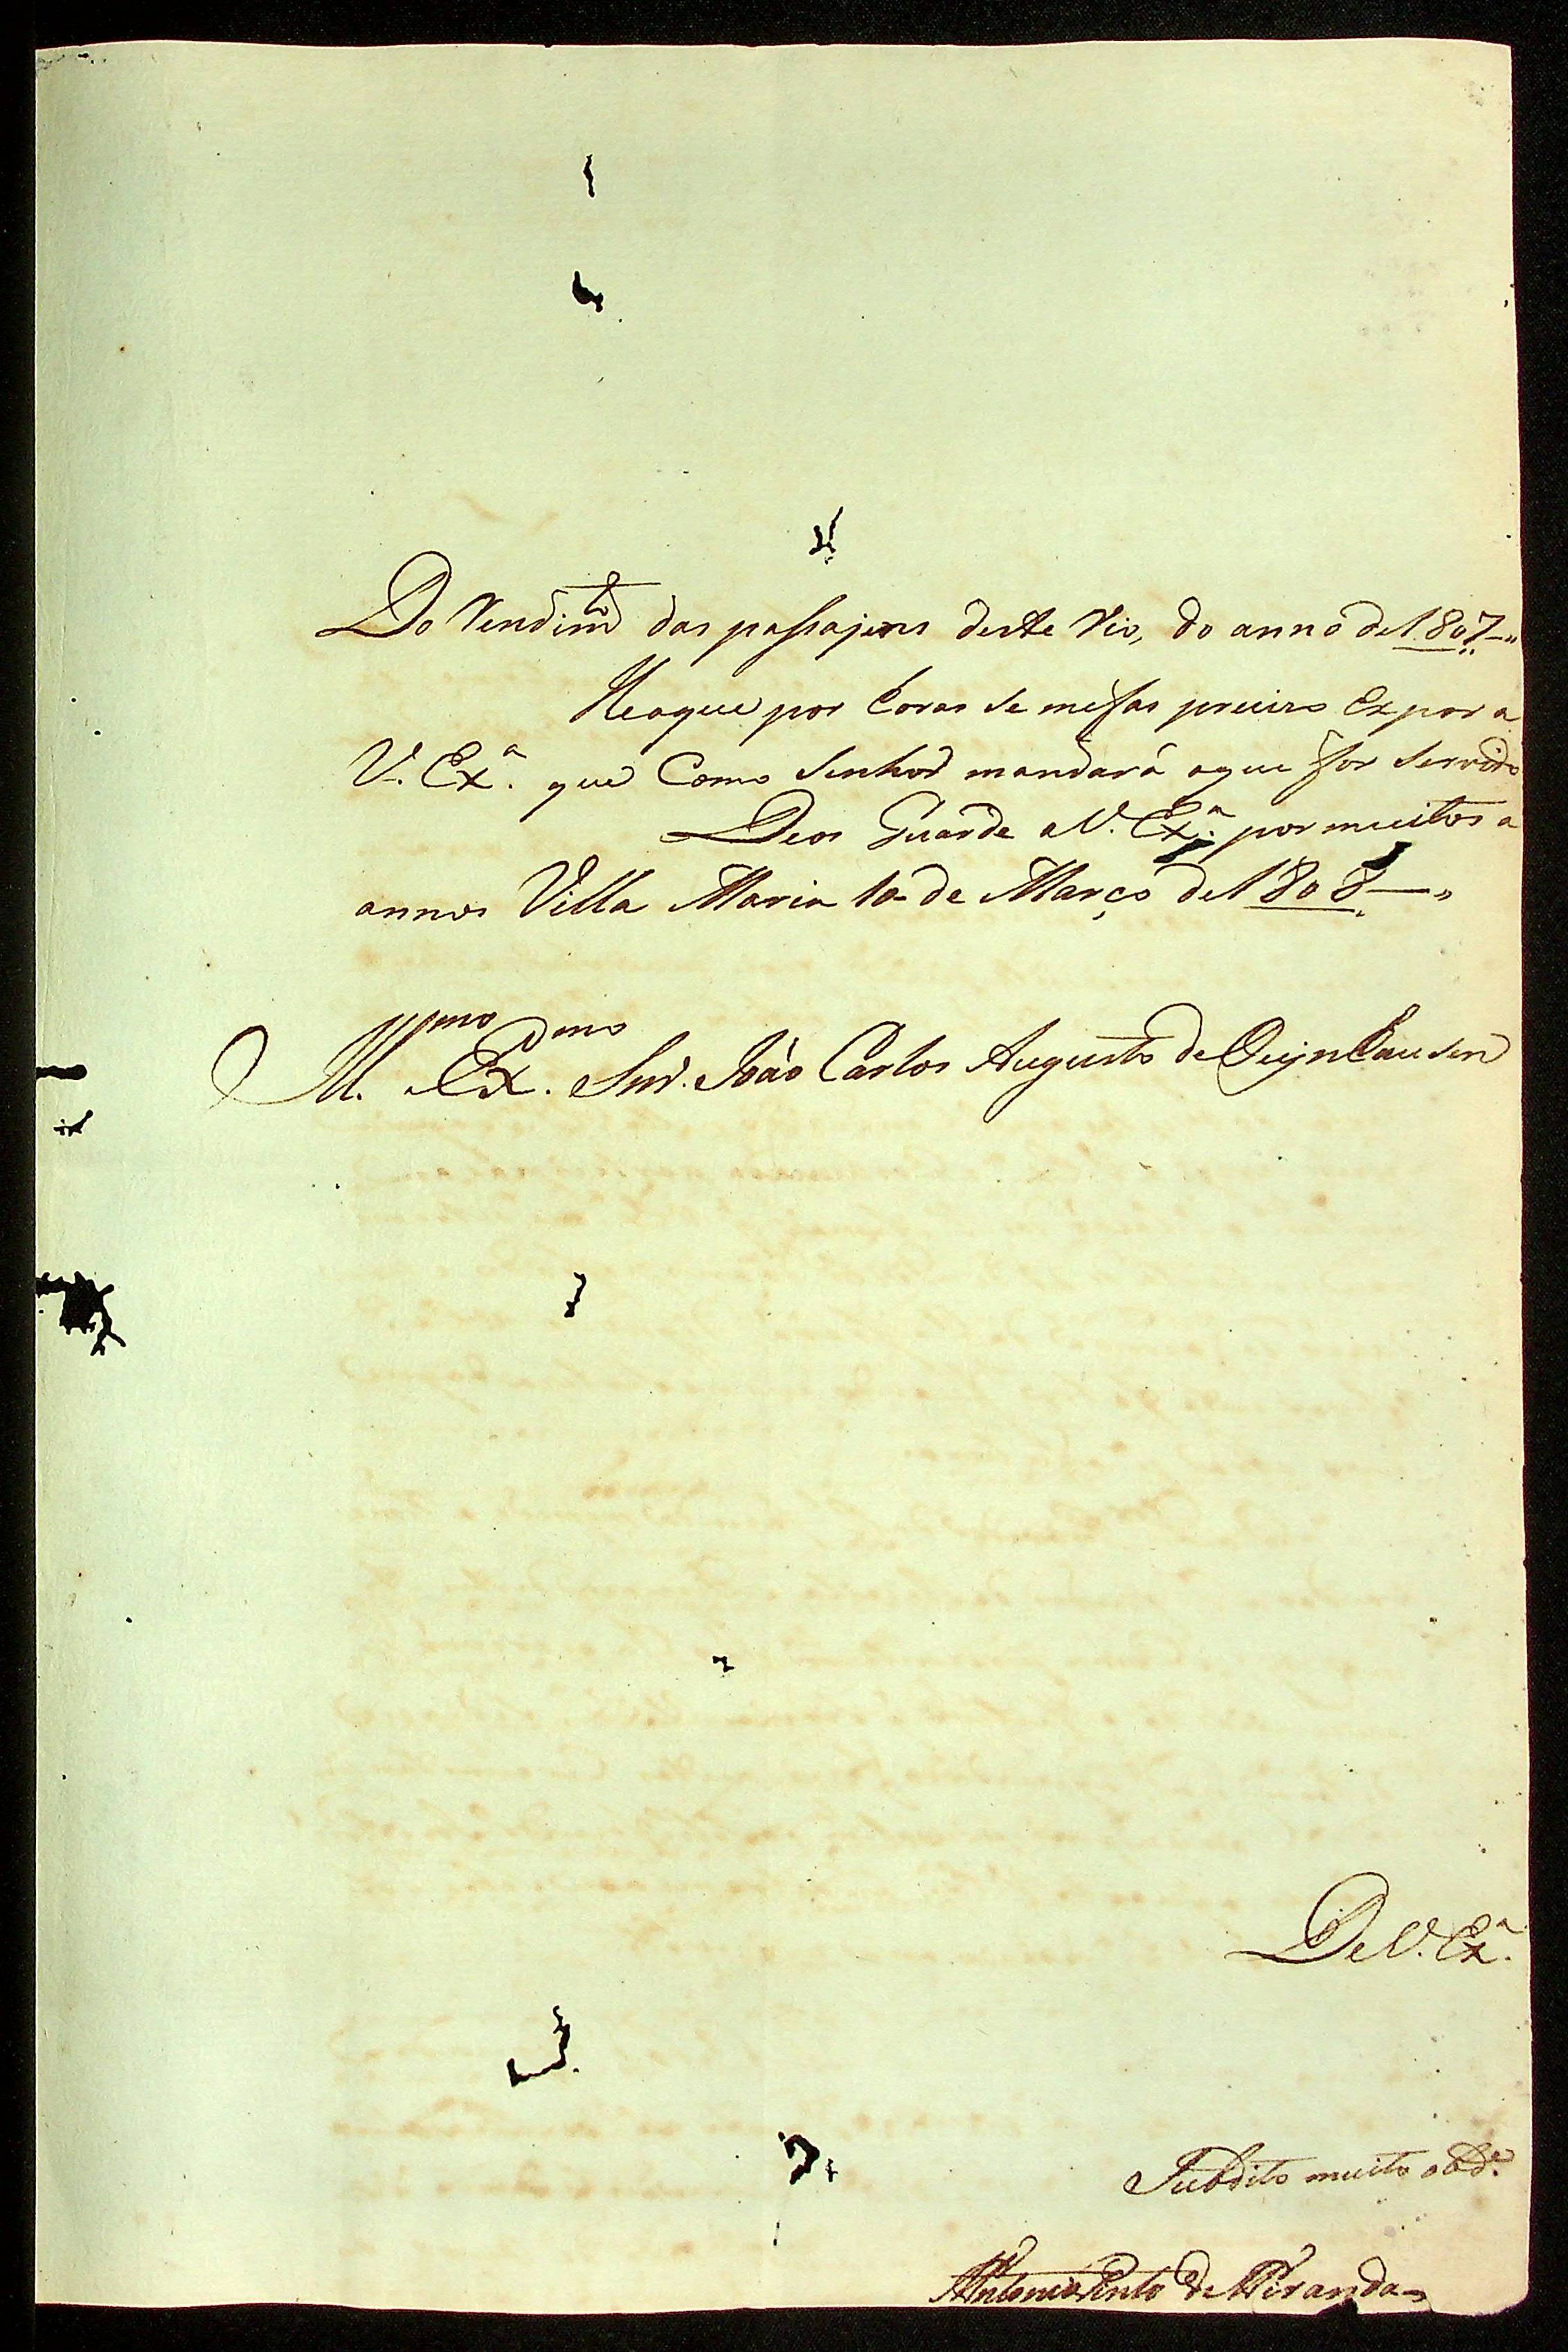 Do Rendim.to das passajens deste Rio, do anno de 1807
He o que por hora se me faz preciso expor a
V. Ex.a que Como Senhor mandará o que for Servido
Deos Guarde a V. Ex.a por muitos a
annos Villa Maria 10 de Março de 1808
Ill.mo Ex.mo Snr. João Carlos Augusto de Oeynhausen
De V. Ex.a
Subdito muito obd.e
Antonio Pinto de Miranda